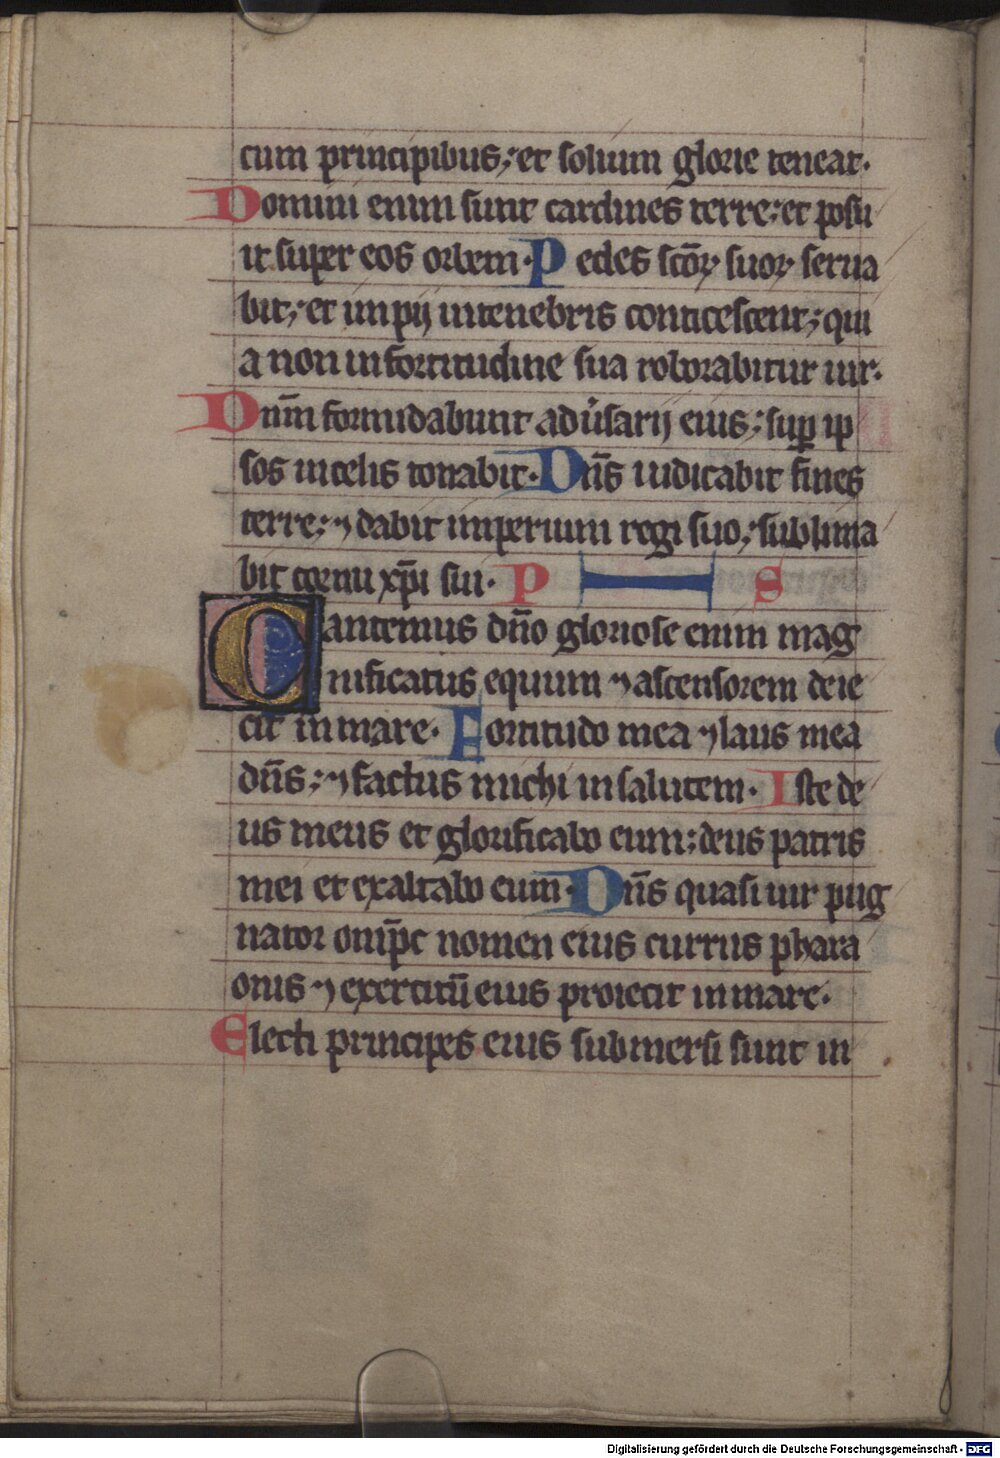 cum principibus; et solium glorie teneat.
Domini enim sunt cardines terre; et posu
it super eos orbem. Pedes scōꝝ suoꝝ serua
bit; et impij in tenebris conticescent; qui
a non in fortitudine sua roborabitur uir.
Dn̄m formidabunt adu̓sarij eius; suꝑ ip
sos in celis tonabit. Dn̄s iudicabit fines
terre; ⁊ dabit imperium regi suo; sublima
bit cornu xp̄i sui. P S
Cantemus dn̄o gloriose enim mag
nificatus equum ⁊ ascensorem deie
cit in mare. Fortitudo mea ⁊ laus mea
dn̄s; ⁊ factus michi in salutem. Iste de
us meus et glorificabo eum; deus patris
mei et exaltabo eum. Dn̄s quasi uir pug
nator omīpc nomen eius currus phara
onis ⁊ exercitū eius proiecit in mare.
Electi principes eius submersi sunt in
Digitalisierung gefördert durch die Deutsche Forschungsgemeinschaft - DFG